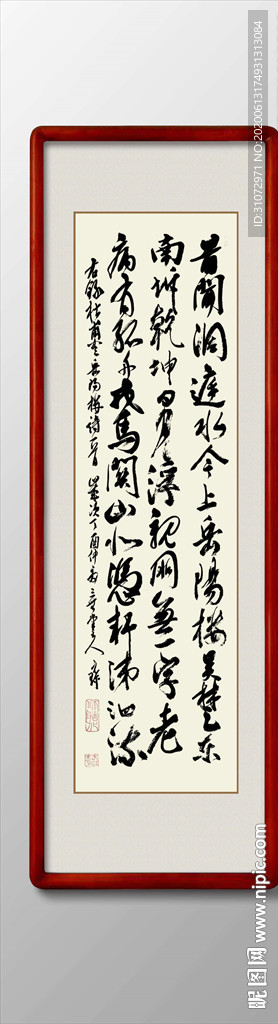 昔聞洞庭水今上岳陽樓吳楚東
南坼乾坤日夜浮親朋無一字老
病有孤舟戎馬關山北憑軒涕泗流
右錄杜甫登岳陽樓詩一首 歲次丁酉仲
ID:31072971 NO:20200613174931313084
昵图网 www.nipic.com